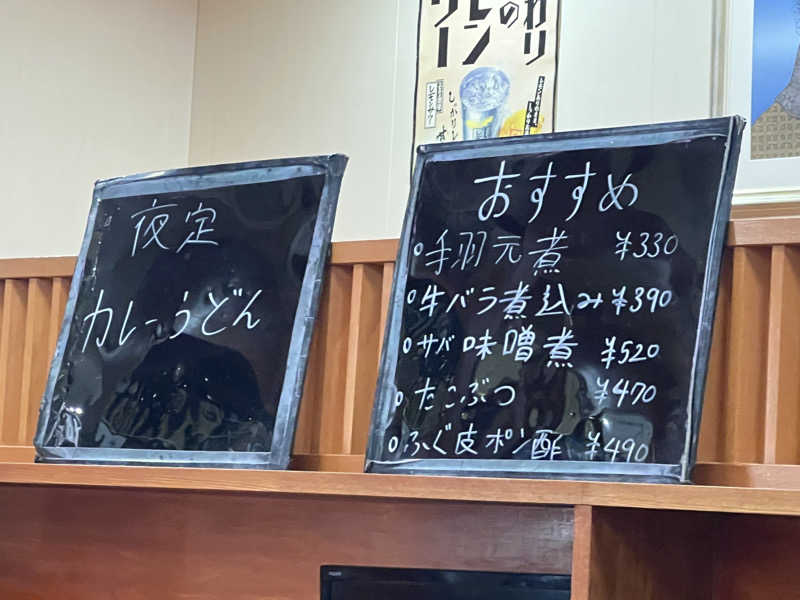 夜定
カレーうどん
おすすめ
手羽元煮 ¥330
牛バラ煮込み ¥390
サバ味噌煮 ¥520
たこぶつ ¥470
ふぐ皮ポン酢 ¥490
レモンサワー